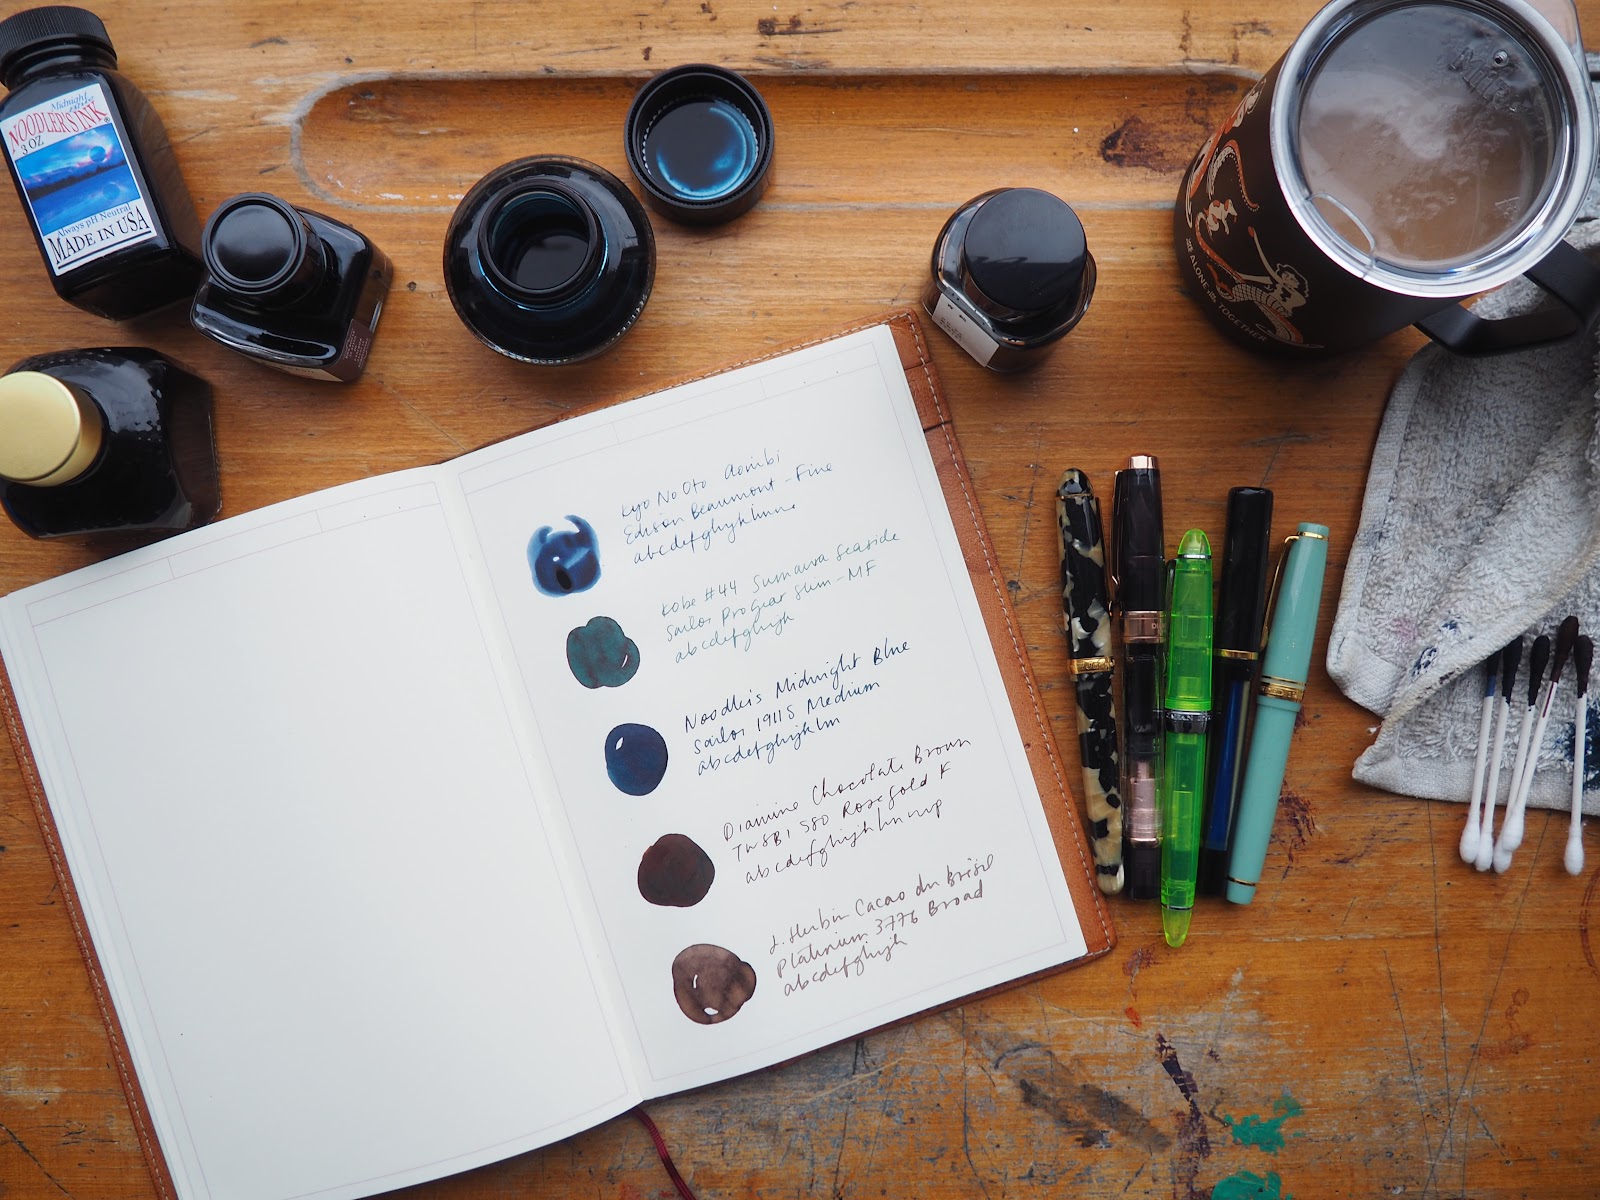 Midnight
NOODLER'S INK
3 OZ
Always pH Neutral
MADE IN USA
ALONE
TOGETHER
Kyo No Oto Aonibi
Edison Beaumont - Fine
abcdefghijklmn
Kobe #44 Sumaura Seaside
Sailor ProGear Slim - MF
abcdefghijk
Noodler's Midnight Blue
Sailor 1911S Medium
abcdefghijklm
Diamine Chocolate Brown
TWSBI 580 Rosegold F
abcdefghijklmnop
J. Herbin Cacao du Brésil
Platinum 3776 Broad
abcdefghijk